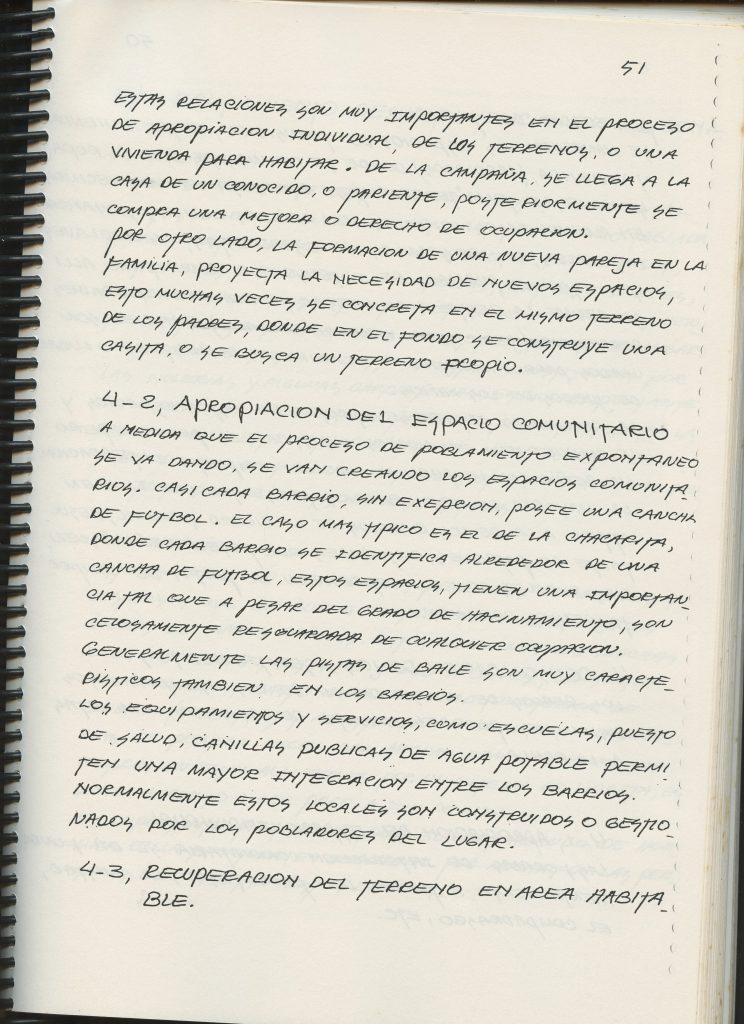 51
ESTAS RELACIONES SON MUY IMPORTANTES EN EL PROCESO
DE APROPIACION INDIVIDUAL, DE LOS TERRENOS, O UNA
VIVIENDA PARA HABITAR. DE LA CAMPAÑA, SE LLEGA A LA
CASA DE UN CONOCIDO, O PARIENTE, POSTERIORMENTE SE
COMPRA UNA MEJORA O DERECHO DE OCUPACION.
POR OTRO LADO, LA FORMACION DE UNA NUEVA PAREJA EN LA
FAMILIA, PROYECTA LA NECESIDAD DE NUEVOS ESPACIOS,
ESTO MUCHAS VECES SE CONCRETA EN EL MISMO TERRENO
DE LOS PADRES, DONDE EN EL FONDO SE CONSTRUYE UNA
CASITA, O SE BUSCA UN TERRENO PROPIO.
4-2, APROPIACION DEL ESPACIO COMUNITARIO
A MEDIDA QUE EL PROCESO DE POBLAMIENTO EXPONTANEO
SE VA DANDO, SE VAN CREANDO LOS ESPACIOS COMUNITA-
RIOS. CASI CADA BARRIO, SIN EXEPCION, POSEE UNA CANCHA
DE FUTBOL. EL CASO MAS TIPICO ES EL DE LA CHACARITA,
DONDE CADA BARRIO SE IDENTIFICA ALREDEDOR DE UNA
CANCHA DE FUTBOL, ESTOS ESPACIOS, TIENEN UNA IMPORTAN-
CIA TAL QUE A PESAR DEL GRADO DE HACINAMIENTO, SON
CELOSAMENTE RESGUARDADA DE CUALQUIER OCUPACION.
GENERALMENTE LAS PISTAS DE BAILE SON MUY CARACTE-
RISTICOS TAMBIEN EN LOS BARRIOS.
LOS EQUIPAMIENTOS Y SERVICIOS, COMO ESCUELAS, PUESTO
DE SALUD, CANILLAS PUBLICAS DE AGUA POTABLE PERMI-
TEN UNA MAYOR INTEGRACION ENTRE LOS BARRIOS.
NORMALMENTE ESTOS LOCALES SON CONSTRUIDOS O GESTIO-
NADOS POR LOS POBLADORES DEL LUGAR.
4-3, RECUPERACION DEL TERRENO EN AREA HABITA-
BLE.